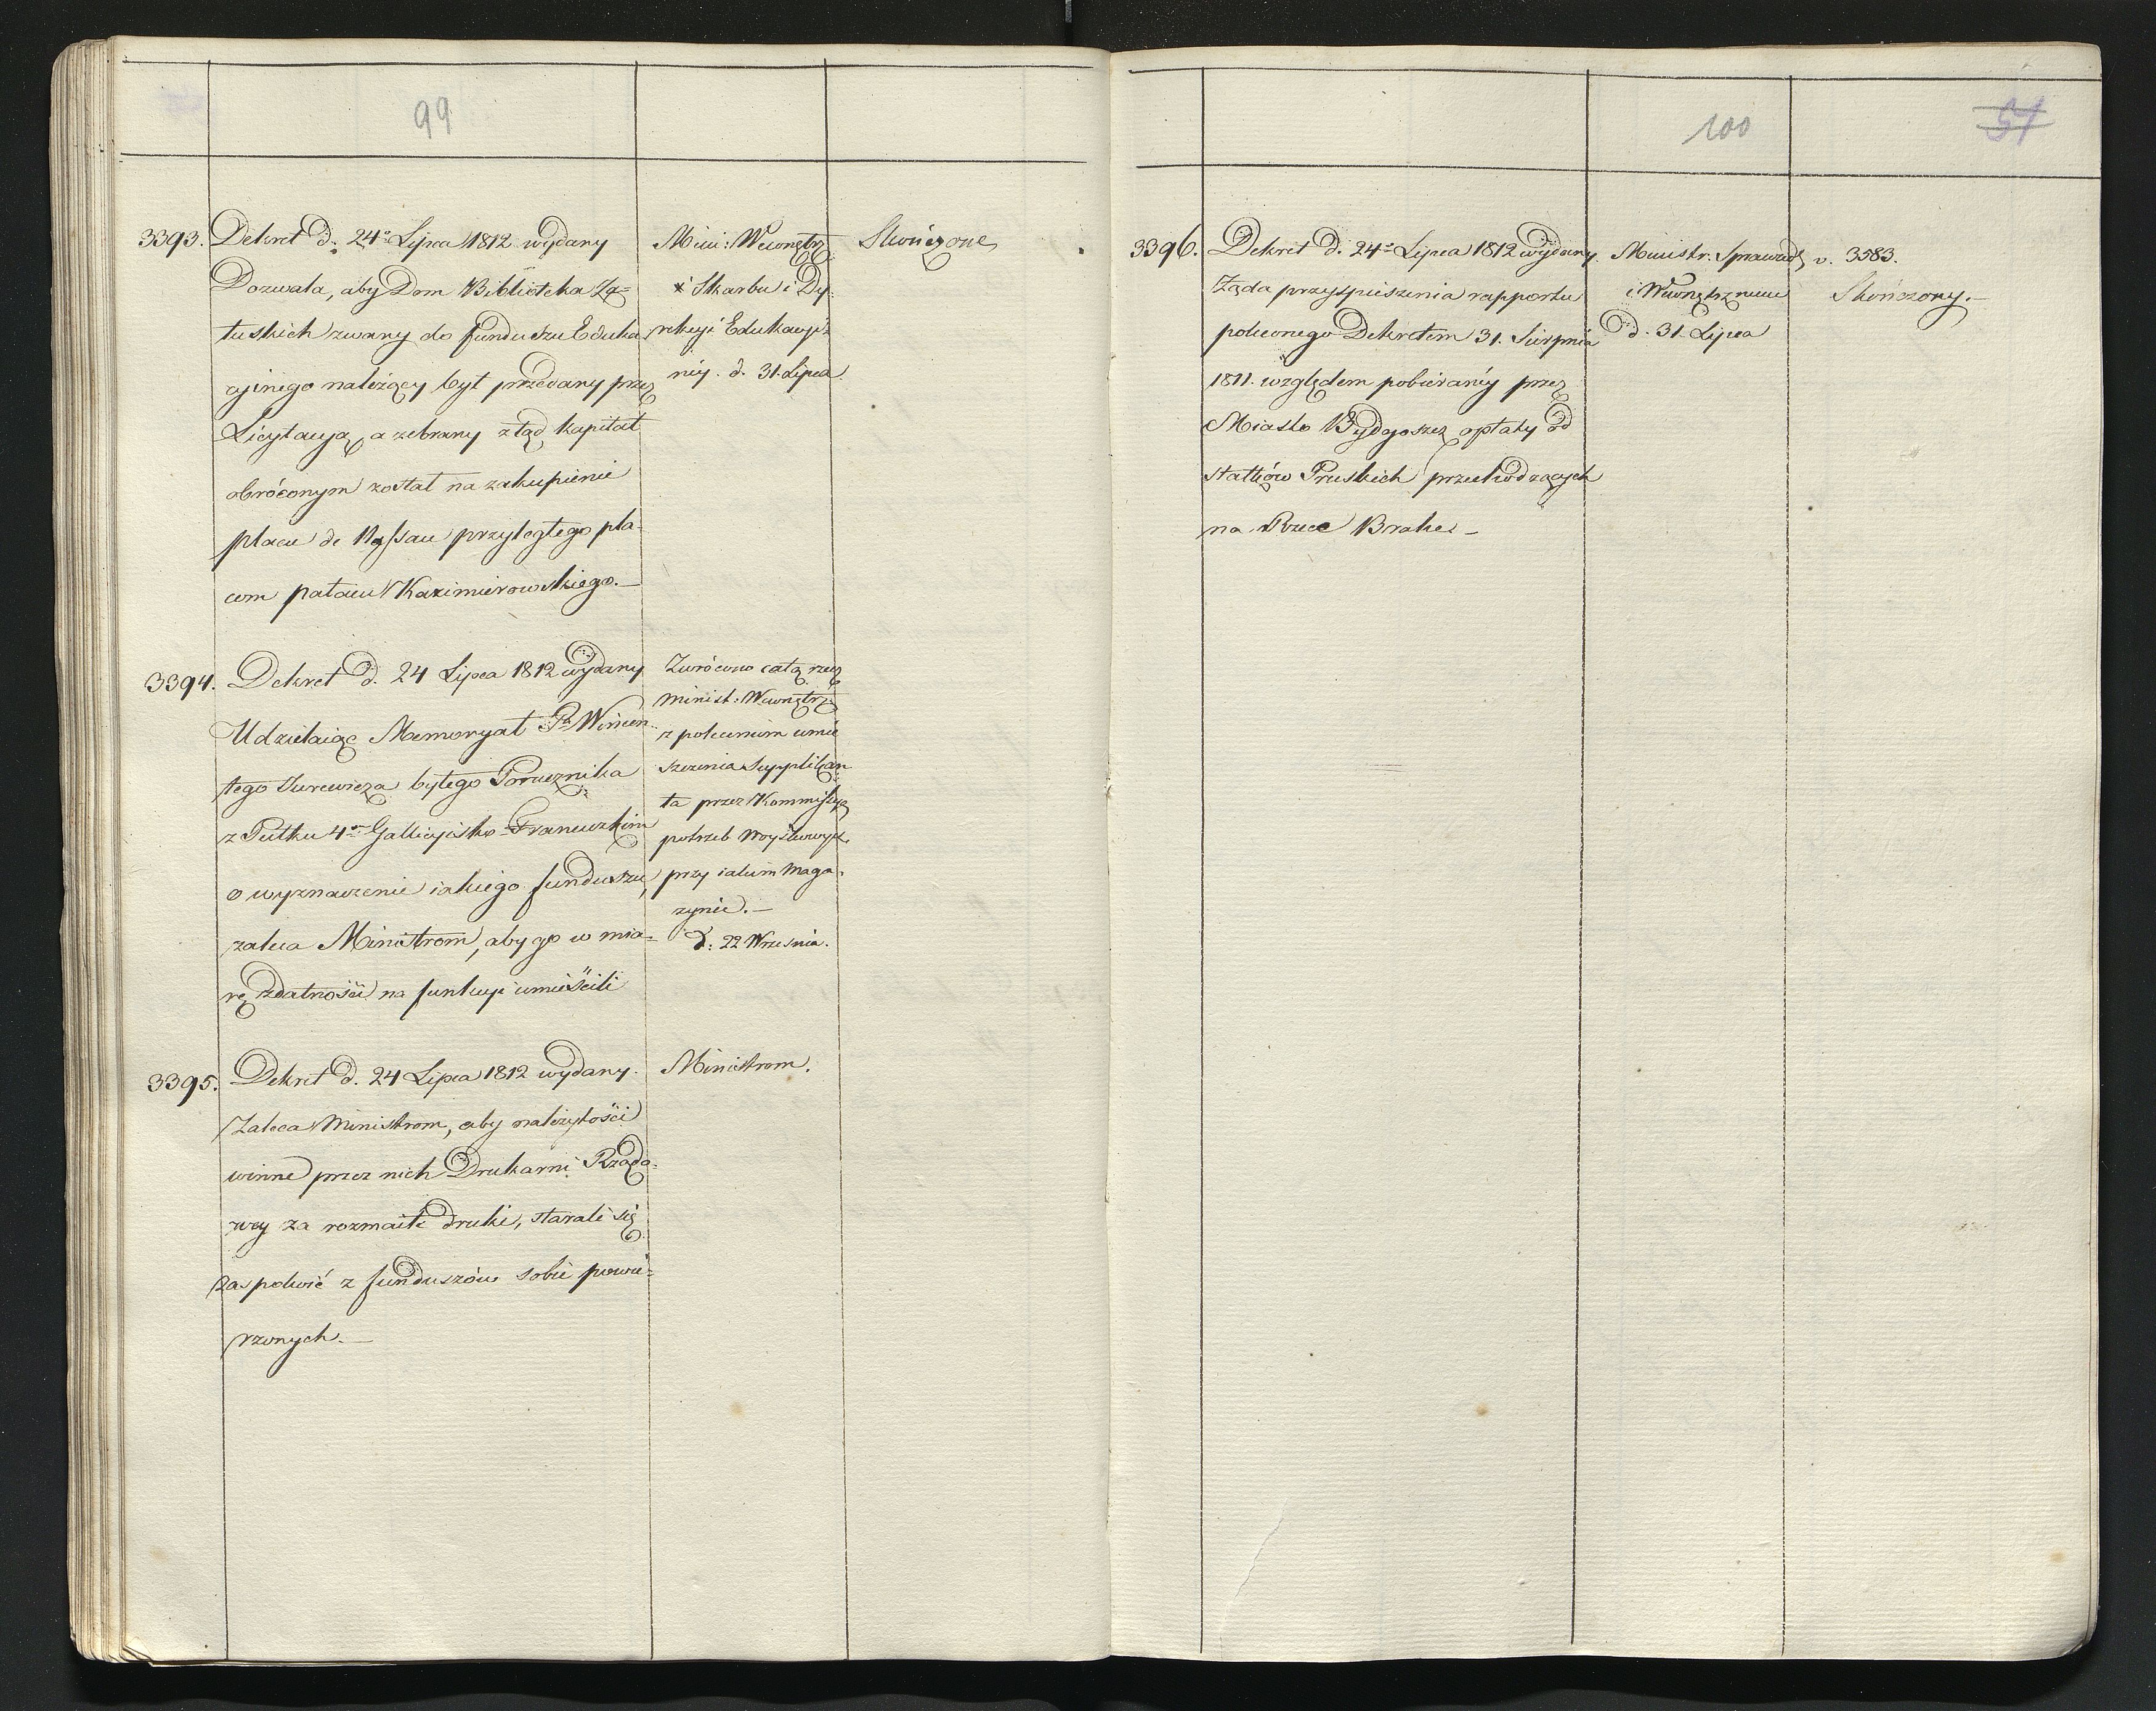 99
3393. Dekret d. 24º Lipca 1812 wydany
Dozwala, aby Dom Biblioteka Za=
łuskich zwany do funduszu Eduka
cyinego należący był przedany przez
Licytacyą, a zebrany ztąd kapitał
obróconym został na zakupienie
placu de Nassau przyległego pla=
com pałacu Kazimirowskiego.—
Mini: Wewnętrz
i Skarbu i Dy=
rekcyi Edukacyi=
ney. d. 31. Lipca.
Skończone
3394. Dekret d. 24 Lipca 1812 wydany
Udzielaiąc Memoryał P. Wincen
tego Jurewicza byłego Porucznika
z Pułku 4go Gallicyisko-Francuzkim
o wyznaczenie iakiego funduszu,
zaleca Ministrom, aby go w mia=
rę zdatności na funkcyi umieścili
Zwrócono całą rzecz
Minist: Wewnętrz
z poleceniem umie
szczenia Supplikan
ta przez Kommissyą
potrzeb Woyskowych
przy iakim Maga=
zynie.—
d: 22 Września.
3395. Dekret d. 24 Lipca 1812 wydany.
Zaleca Ministrom, aby należytości
winne przez nich Drukarni Rządo=
wey za rozmaite druki, starali się
zaspokoić z funduszów sobie powie=
rzonych.—
Ministrom.
100
51
3396. Dekret d. 24º Lipca 1812 wydany.
Żąda przyspieszenia rapportu
poleconego Dekretem 31. Sierpnia
1811. względem pobieraney przez
Miasto Bydgoszcz opłaty od
statków Pruskich przechodzących
na Rzece Brahei —
Ministr. Sprawied,
i Wewnętrznemu
d. 31. Lipca
v. 3583.
Skończony.—